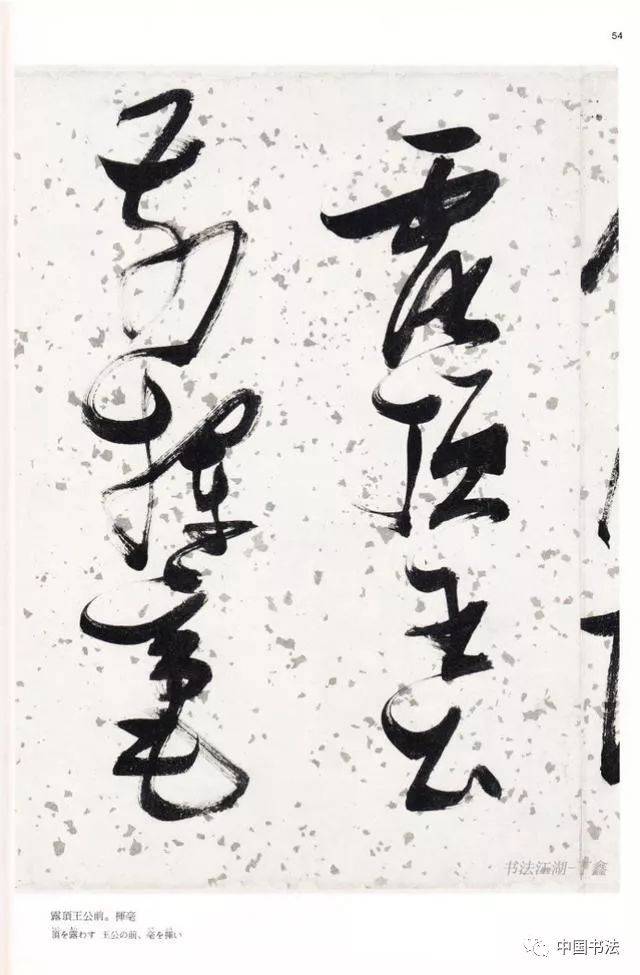 54
露頂王公
前揮毫
书法江湖-丁鑫
露頂王公前。揮毫
頂を露わす 王公の前、毫を揮い
中国书法